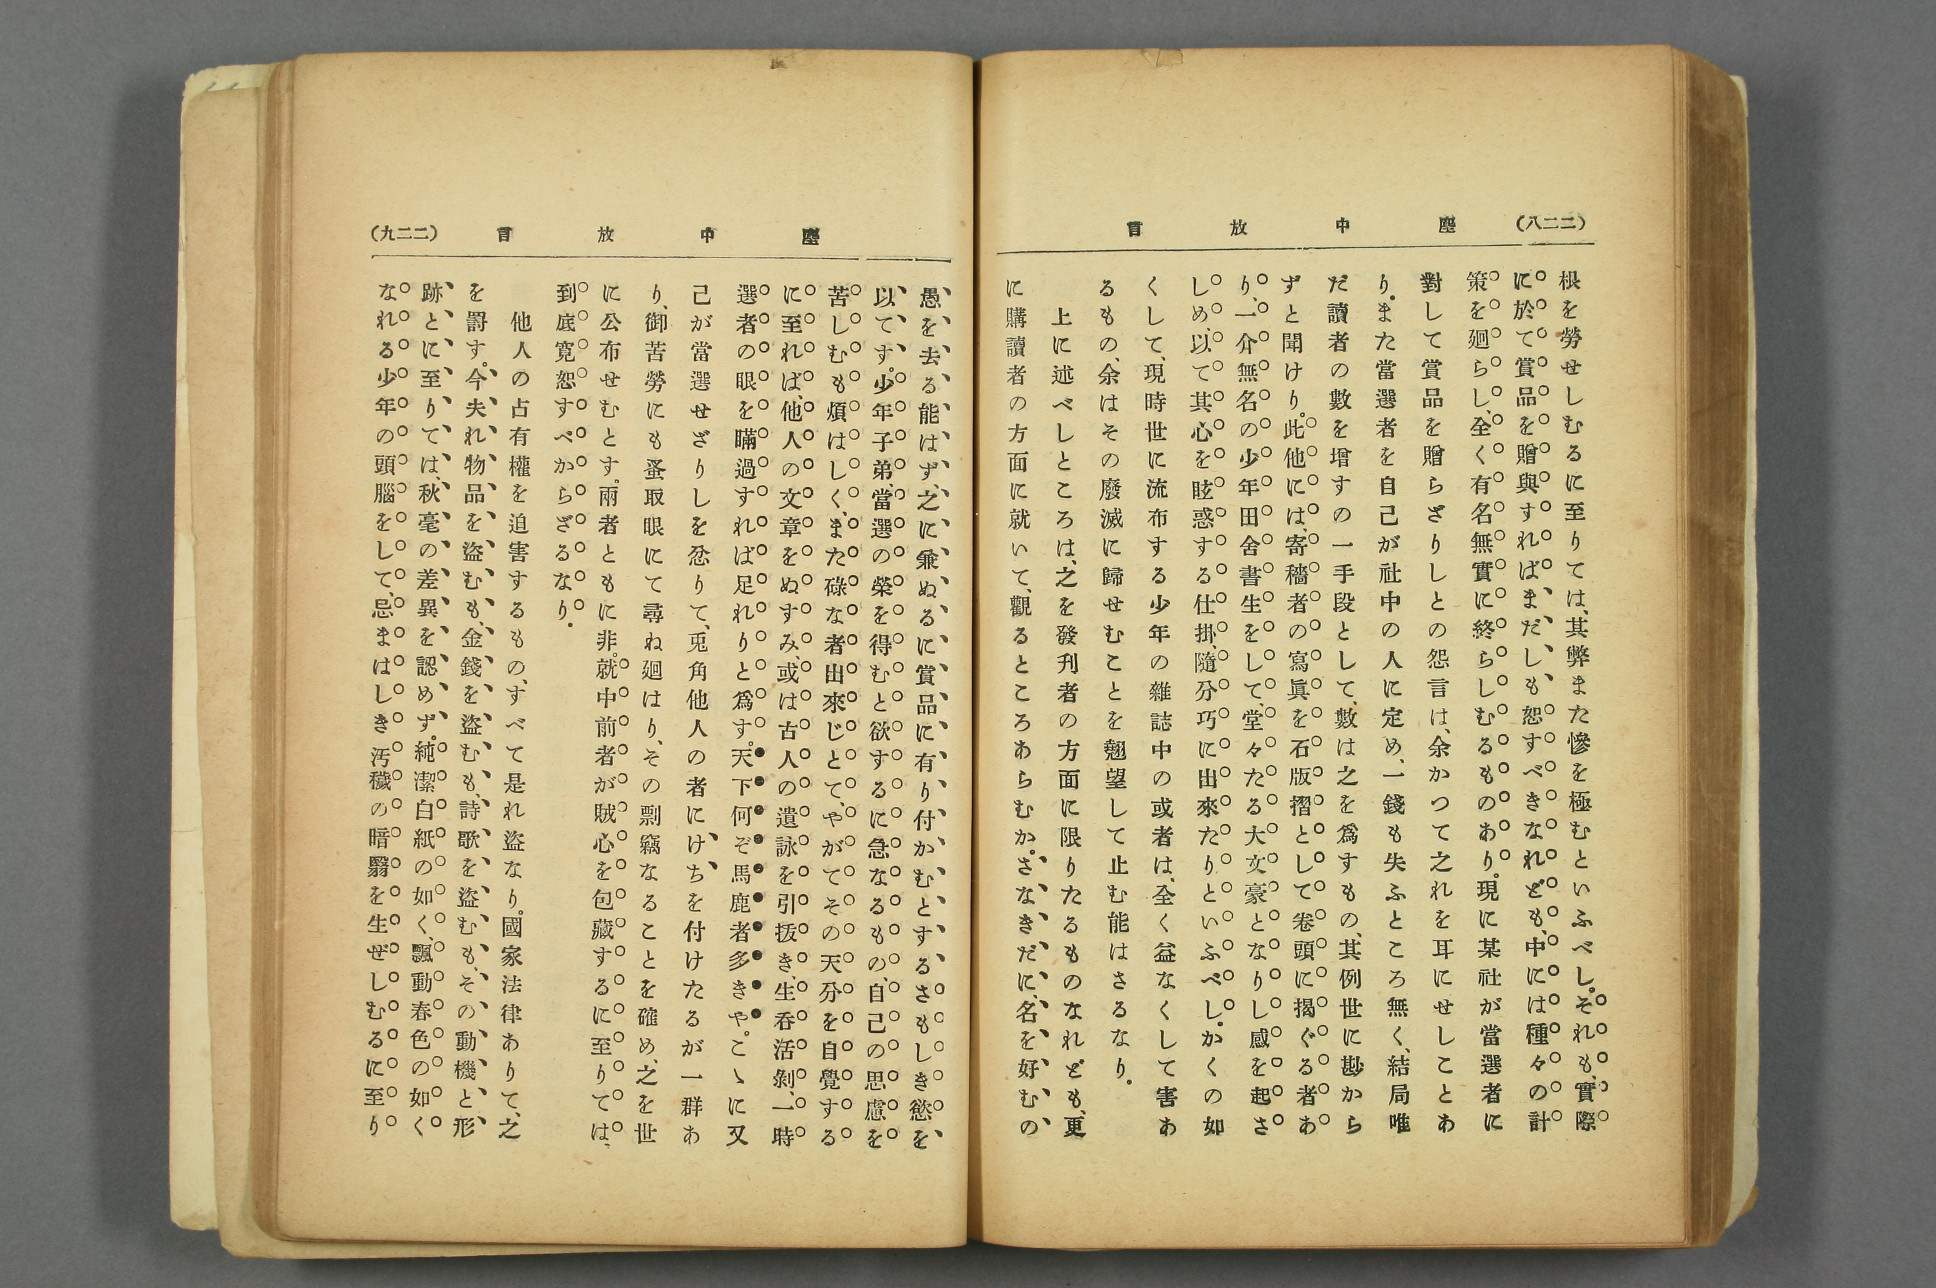 (二二八) 塵中放言
根を勞せしむるに至りては、其弊また慘を極むといふべし。それも、實際
に於て賞品を贈與すればまだしも恕すべきなれども、中には種々の計
策を廻らし、全く有名無實に終らしむるものあり。現に某社が當選者に
對して賞品を贈らざりしとの怨言は、余かつて之れを耳にせしことあ
り。また當選者を自己が社中の人に定め、一錢も失ふところ無く、結局唯
だ讀者の數を增すの一手段として、數は之を爲すもの、其例世に尠から
ずと聞けり。此他には、寄穡者の寫眞を石版摺として卷頭に揭ぐる者あ
り、一介無名の少年田舍書生をして、堂々たる大文豪となりし感を起さ
しめ、以て其心を眩惑する仕掛、隨分巧に出來たりといふべし。かくの如
くして、現時世に流布する少年の雜誌中の或者は、全く益なくして害あ
るもの、余はその廢滅に歸せむことを翹望して止む能はさるなり。
上に述べしところは、之を發刋者の方面に限りたるものなれども、更
に購讀者の方面に就いて、觀るところあらむか。さなきだに、名を好むの
塵中放言 (二二九)
愚を去る能はず、之に兼ぬるに賞品に有り付かむとするさもしき慾を
以てす。少年子弟、當選の榮を得むと欲するに急なるもの、自己の思慮を
苦しむも煩はしく、また碌な者出來じとて、やがてその天分を自覺する
に至れば、他人の文章をぬすみ、或は古人の遺詠を引拔き、生呑活剝、一時
選者の眼を瞞過すれば足れりと爲す。天下何ぞ馬鹿者多きや。こゝに又
己が當選せざりしを忿りて、兎角他人の者にけちを付けたるが一群あ
り、御苦勞にも蚤取眼にて尋ね廻はり、その剽竊なることを確め、之を世
に公布せむとす。兩者ともに非。就中前者が賊心を包藏するに至りては、
到底寬恕すべからざるなり。
他人の占有權を迫害するもの、すべて是れ盜なり。國家法律ありて、之
を罸す。今夫れ物品を盜むも、金錢を盜むも、詩歌を盜むも、その動機と形
跡とに至りては、秋毫の差異を認めず。純潔白紙の如く、飄動春色の如く
なれる少年の頭腦をして、忌まはしき汚穢の暗翳を生ぜしむるに至り